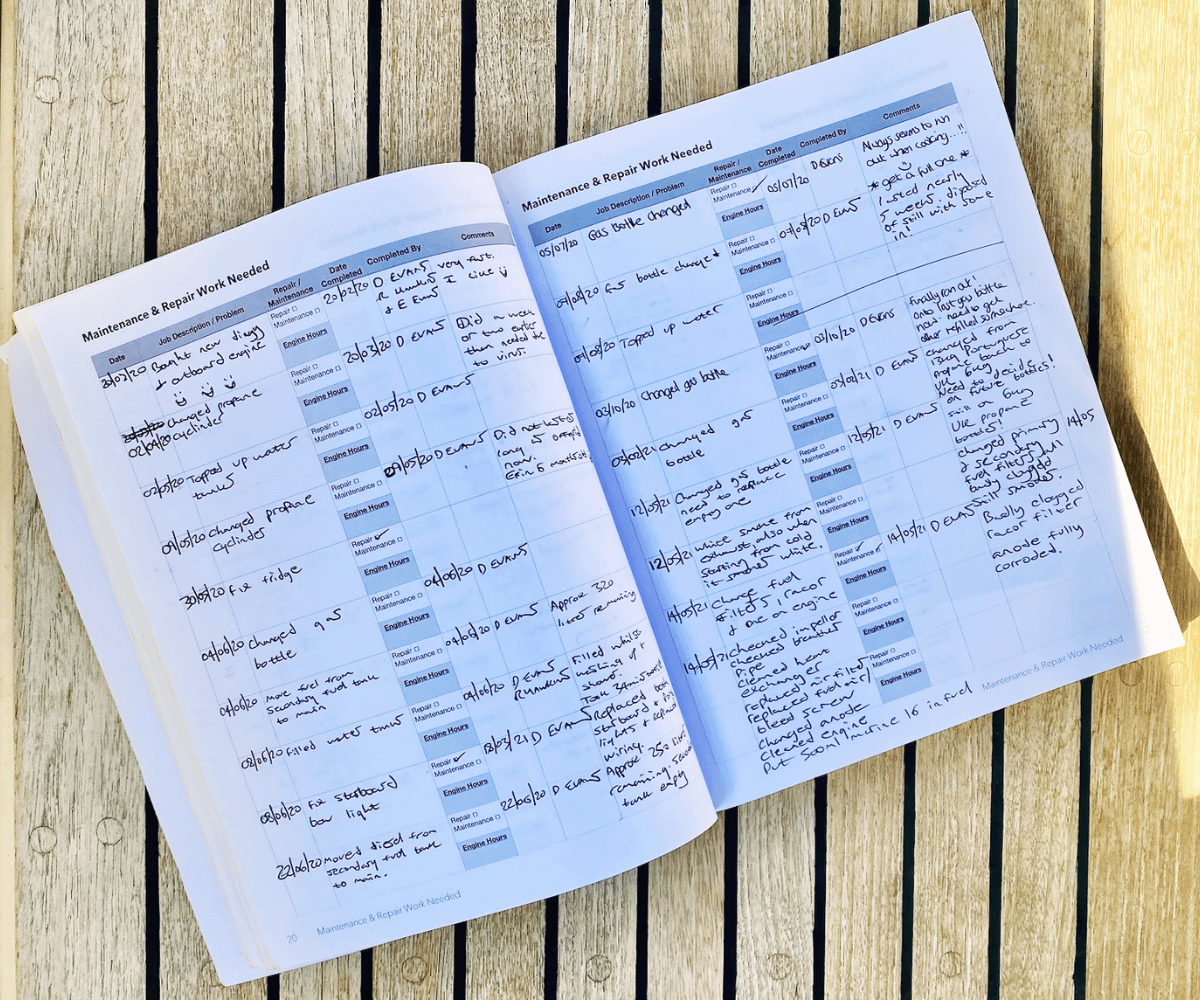 Maintenance & Repair Work Needed
Date Job Description / Problem Repair / Maintenance Date Completed Completed By Comments
20/03/20 Bought new dinggy
& outboard engine
Repair
Maintenance
Engine Hours
20/02/20 D EVANS
& E Evans
very fast.
I like
changed propane
02/04/20 cylinder
Repair
Maintenance
Engine Hours
20/03/20 D EVANS
Did a week
or two earlier
then needed due
to virus.
02/05/20 Topped up water
tanks
Repair
Maintenance
Engine Hours
02/05/20 D EVANS
09/05/20 changed propane
cylinder
Repair
Maintenance
Engine Hours
09/05/20 D EVANS
Did not last as
long
now.
30/05/20 Fix fridge
Repair
Maintenance
Engine Hours
04/06/20 Changed gas
bottle
Repair
Maintenance
Engine Hours
04/06/20 D EVANS
04/06/20 Move fuel from
secondary fuel tank
to main
Repair
Maintenance
Engine Hours
04/06/20 D EVANS
Approx 320
litres remaining
08/06/20 Filled water tanks
Repair
Maintenance
Engine Hours
04/06/20 D EVANS
R HAWKINS
Filled whilst
washing up &
shower.
08/06/20 Fix starboard
bow light
Repair
Maintenance
Engine Hours
18/03/21 D EVANS
Replaced both
starboard & port
lights & replaced
wiring.
22/06/20 Moved diesel from
secondary fuel tank
to main.
Repair
Maintenance
Engine Hours
22/06/20 D EVANS
Approx 250 litres
remaining. second
tank empty
20 Maintenance & Repair Work Needed
Maintenance & Repair Work Needed
Date Job Description / Problem Repair / Maintenance Date Completed Completed By Comments
05/07/20 Gas Bottle changed
Repair
Maintenance
Engine Hours
05/07/20 D Evans
Always seems to run
out when cooking....!!
* get a full one *
07/08/20 Gas bottle changed
Repair
Maintenance
Engine Hours
07/08/20 D Evans
Lasted nearly
5 weeks, disposed
of still with some
in!
Topped up water
Repair
Maintenance
Engine Hours
03/10/20 Changed gas bottle
Repair
Maintenance
Engine Hours
03/10/20 D Evans
Finally ran out!
onto last gas bottle
now - need to get
other refilled somewhere.
03/02/21 changed gas
bottle
Repair
Maintenance
Engine Hours
03/02/21 D EVANS
changed from
11kg Portuguese
propane back to
UK 6kg
Need to decide
on future bottles!
12/05/21 Changed gas bottle
need to replace
empty one
Repair
Maintenance
Engine Hours
12/05/21 D EVANS
still on 6kg
UK propane
bottles!
12/05/21 White smoke from
exhaust, also when
starting from cold
it smokes white.
Repair
Maintenance
Engine Hours
changed primary 14/05
& secondary
fuel filters, full
badly clogged
still smokes.
14/05/21 Change fuel
filters, 1 racor
& one on engine
Repair
Maintenance
Engine Hours
14/05/21 D EVANS
Badly clogged
racor filter
anode fully
corroded.
14/05/21 checked impellor
checked breather
pipe
cleaned heat
exchanger
replaced air filter
replaced fuel air/
bleed screw
changed anode
cleaned engine
Put 500ml marine 16 in fuel
Repair
Maintenance
Engine Hours
Repair
Maintenance
Engine Hours
Maintenance & Repair Work Needed